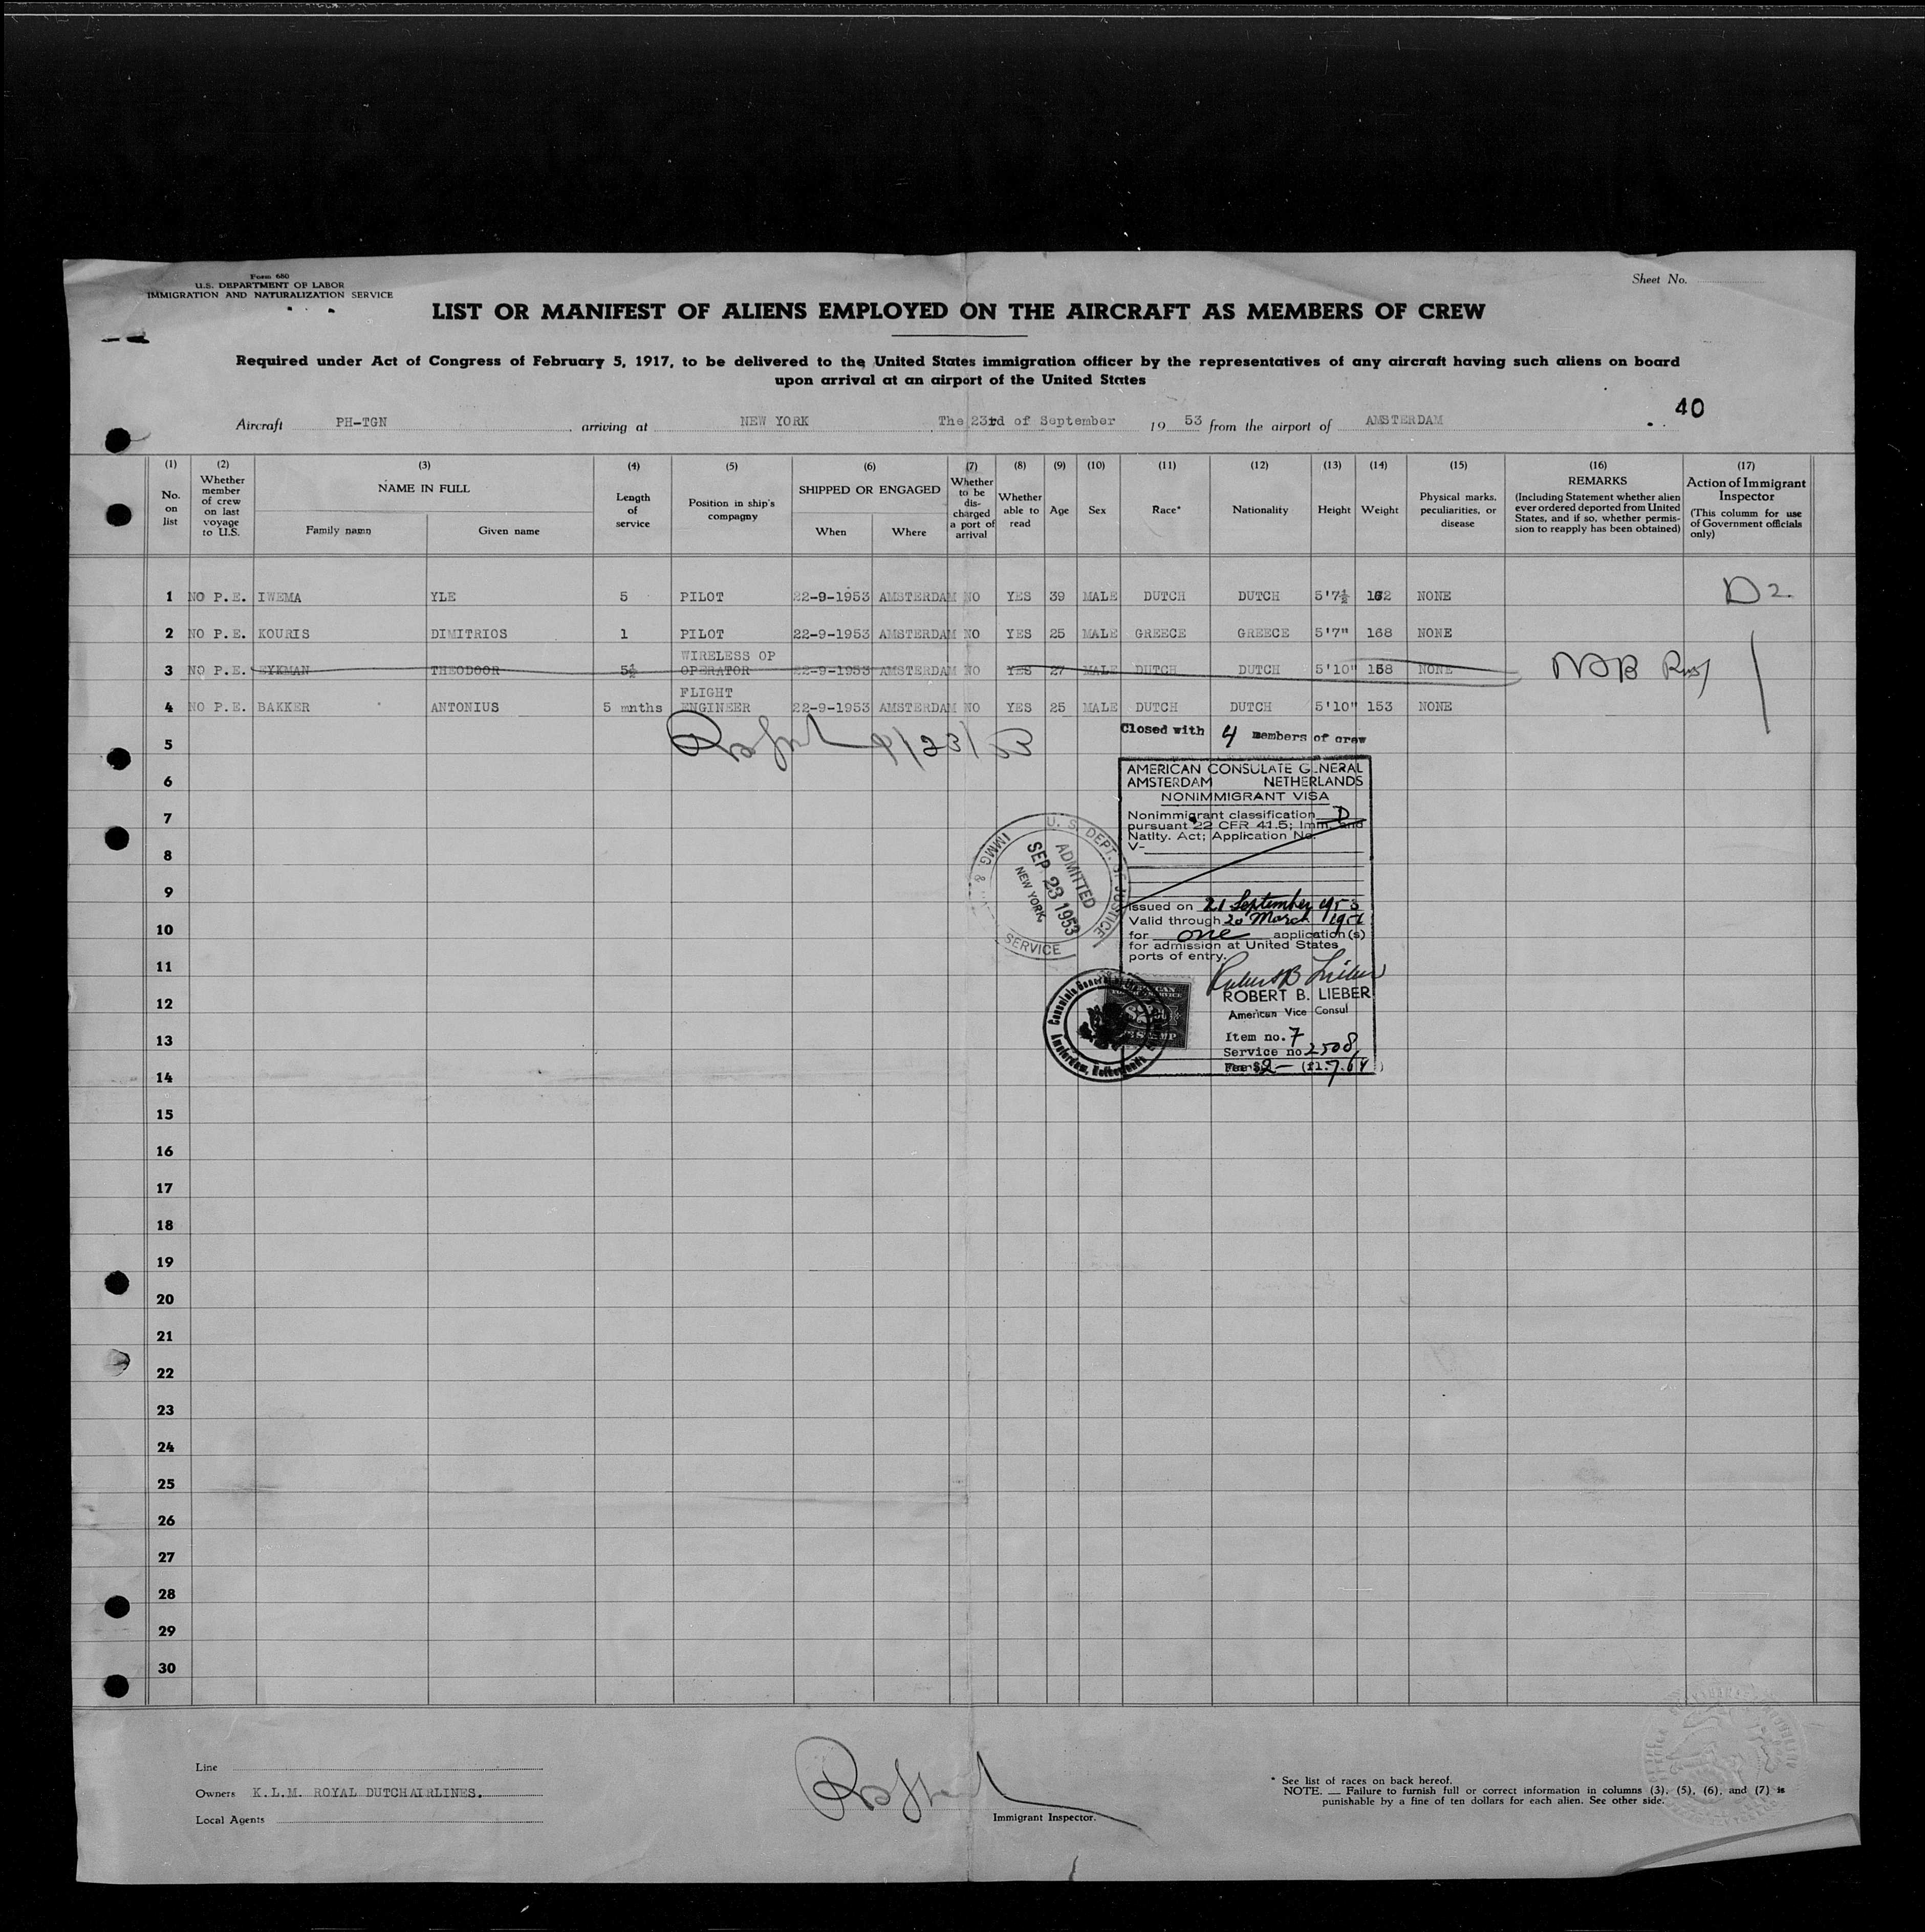 Form 680
U.S. DEPARTMENT OF LABOR
IMMIGRATION AND NATURALIZATION SERVICE
Sheet No.
LIST OR MANIFEST OF ALIENS EMPLOYED ON THE AIRCRAFT AS MEMBERS OF CREW
Required under Act of Congress of February 5, 1917, to be delivered to the United States immigration officer by the representatives of any aircraft having such aliens on board
upon arrival at an airport of the United States
40
Aircraft PH-TGN arriving at NEW YORK The 23rd of September 19 53 from the airport of AMSTERDAM
(1) No. on list
(2) Whether member of crew on last voyage to U.S.
(3) NAME IN FULL
Family namn
Given name
(4) Length of service
(5) Position in ship's compagny
(6) SHIPPED OR ENGAGED
When
Where
(7) Whether to be dis-charged a port of arrival
(8) Whether able to read
(9) Age
(10) Sex
(11) Race*
(12) Nationality
(13) Height
(14) Weight
(15) Physical marks, peculiarities, or disease
(16) REMARKS
(Including Statement whether alien ever ordered deported from United States, and if so, whether permis-sion to reapply has been obtained)
(17) Action of Immigrant Inspector
(This column for use of Government officials only)
1 NO P.E. IWEMA YLE 5 PILOT 22-9-1953 AMSTERDAM NO YES 39 MALE DUTCH DUTCH 5'7½ 162 NONE D2.
2 NO P.E. KOURIS DIMITRIOS 1 PILOT 22-9-1953 AMSTERDAM NO YES 25 MALE GREECE GREECE 5'7" 168 NONE
3 NO P.E. EYKMAN THEODOOR 5½ WIRELESS OP OPERATOR 22-9-1953 AMSTERDAM NO YES 27 MALE DUTCH DUTCH 5'10" 158 NONE
4 NO P.E. BAKKER ANTONIUS 5 mnths FLIGHT ENGINEER 22-9-1953 AMSTERDAM NO YES 25 MALE DUTCH DUTCH 5'10" 153 NONE
9/23/53
Closed with 4 members of crew
5
6
7
8
9
10
11
12
13
14
15
16
17
18
19
20
21
22
23
24
25
26
27
28
29
30
AMERICAN CONSULATE GENERAL
AMSTERDAM NETHERLANDS
NONIMMIGRANT VISA
Nonimmigrant classification D
pursuant 22 CFR 41.5; Imm. and
Natlty. Act; Application No.
V-
Issued on 21 September 1953
Valid through 20 March 1954
for one application(s)
for admission at United States
ports of entry.
Robert B Lieber
ROBERT B. LIEBER
American Vice Consul
Item no. 7
Service no 2508
Fee $2—
U. S. DEPT. OF JUSTICE
ADMITTED
SEP 23 1953
NEW YORK,
IMMG &
SERVICE
Amsterdam, Netherlands
Line
Owners K.L.M. ROYAL DUTCHAIRLINES.
Local Agents
Immigrant Inspector.
* See list of races on back hereof.
NOTE. — Failure to furnish full or correct information in columns (3), (5), (6), and (7) is
punishable by a fine of ten dollars for each alien. See other side.